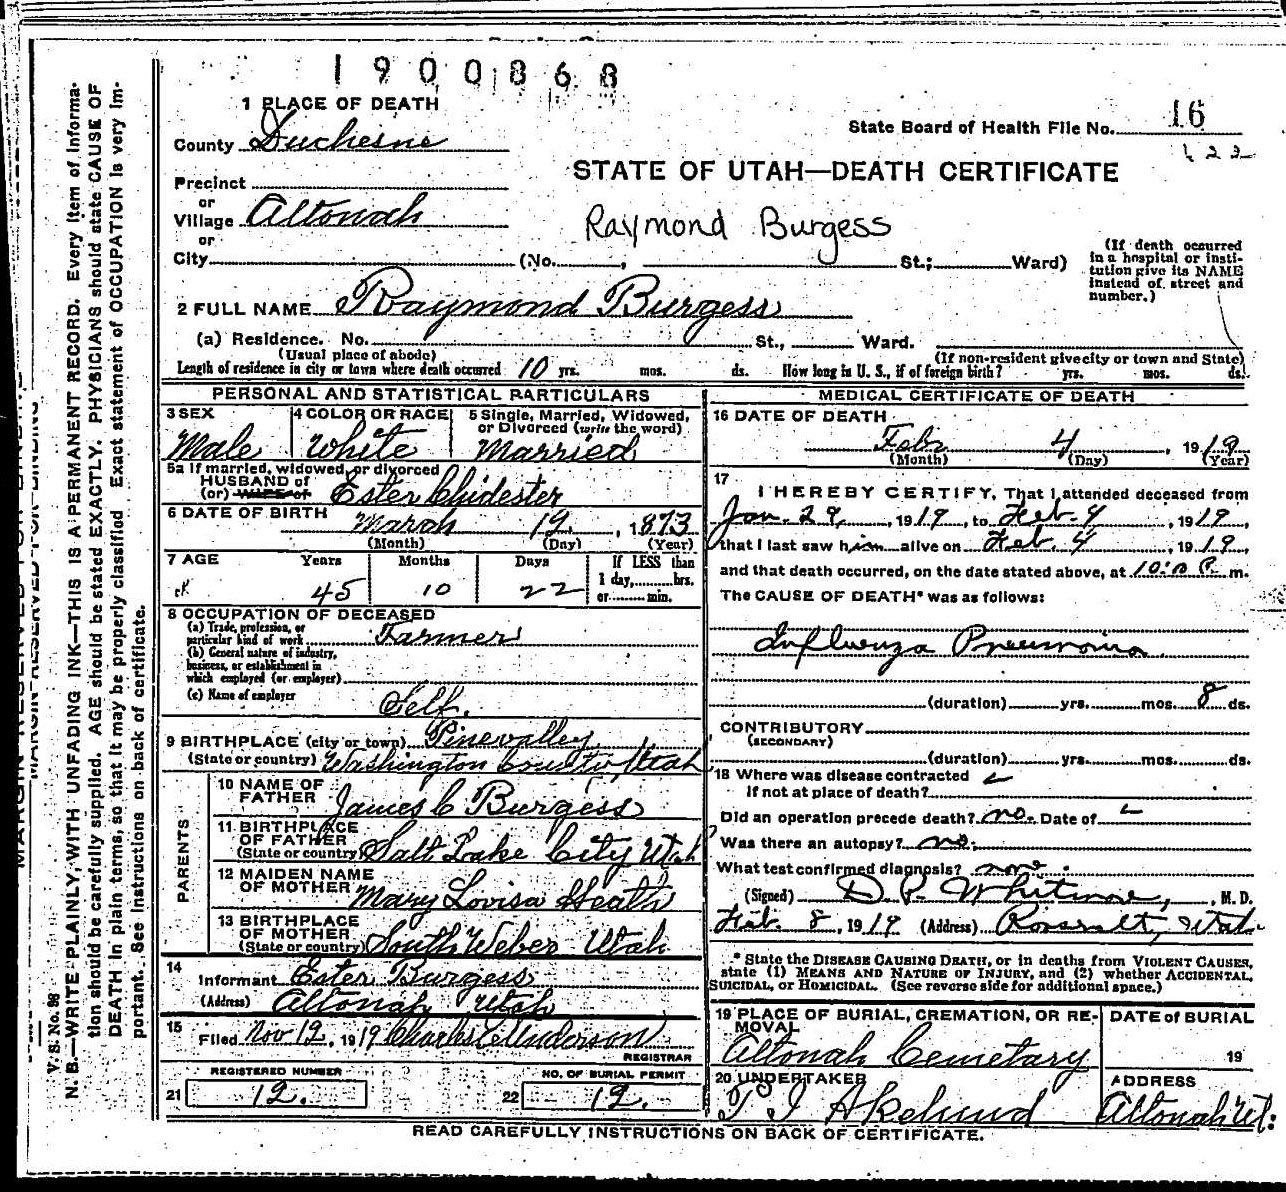 1900868
1 PLACE OF DEATH
County Duchesne
State Board of Health File No. 16
122
STATE OF UTAH—DEATH CERTIFICATE
Precinct
or
Village Altonah
Raymond Burgess
or
City (No. , St.; Ward)
(If death occurred in a hospital or institution give its NAME instead of street and number.)
2 FULL NAME Raymond Burgess
(a) Residence. No. St., Ward.
(Usual place of abode) (If non-resident give city or town and State)
Length of residence in city or town where death occurred 10 yrs. mos. ds. How long in U. S., if of foreign birth? yrs. mos. ds.
PERSONAL AND STATISTICAL PARTICULARS
3 SEX Male
4 COLOR OR RACE White
5 Single, Married, Widowed, or Divorced (write the word) Married
5a If married, widowed, or divorced
HUSBAND of
(or) WIFE of Ester Chidester
6 DATE OF BIRTH March 12, 1873
(Month) (Day) (Year)
7 AGE Years Months Days If LESS than
1 day, hrs.
or min.
45 10 22
8 OCCUPATION OF DECEASED
(a) Trade, profession, or particular kind of work Farmer
(b) General nature of industry, business, or establishment in which employed (or employer)
(c) Name of employer Self.
9 BIRTHPLACE (city or town) Pinevalley
(State or country) Washington County, Utah
PARENTS
10 NAME OF FATHER James C Burgess
11 BIRTHPLACE OF FATHER (State or country) Salt Lake City Utah
12 MAIDEN NAME OF MOTHER Mary Lovisa Heath
13 BIRTHPLACE OF MOTHER (State or country) South Weber Utah
14 Informant Ester Burgess
(Address) Altonah Utah
15 Filed Nov 12, 1919 Charles C Anderson
REGISTRAR
REGISTERED NUMBER
21 12.
NO. OF BURIAL PERMIT
22 12.
MEDICAL CERTIFICATE OF DEATH
16 DATE OF DEATH
Febr 4, 1919
(Month) (Day) (Year)
17 I HEREBY CERTIFY, That I attended deceased from
Jan. 29, 1919, to Feb. 4, 1919,
that I last saw him alive on Feb. 4, 1919,
and that death occurred, on the date stated above, at 10:10 P. m.
The CAUSE OF DEATH* was as follows:
Influenza Pneumonia.
(duration) yrs. mos. 8 ds.
CONTRIBUTORY
(SECONDARY)
(duration) yrs. mos. ds.
18 Where was disease contracted
If not at place of death?
Did an operation precede death? no. Date of
Was there an autopsy? no.
What test confirmed diagnosis? none.
(Signed) D. P. Whitmore, M. D.
Feb. 8, 1919 (Address) Roosevelt, Utah
* State the DISEASE CAUSING DEATH, or in deaths from VIOLENT CAUSES, state (1) MEANS AND NATURE OF INJURY, and (2) whether ACCIDENTAL, SUICIDAL, or HOMICIDAL. (See reverse side for additional space.)
19 PLACE OF BURIAL, CREMATION, OR REMOVAL Altonah Cemetary
DATE of BURIAL
19
20 UNDERTAKER T J Akelund
ADDRESS Altonah Ut.
READ CAREFULLY INSTRUCTIONS ON BACK OF CERTIFICATE.
MARGIN RESERVED FOR BINDING
V. S. No. 86
N. B.—WRITE PLAINLY, WITH UNFADING INK—THIS IS A PERMANENT RECORD. Every item of information should be carefully supplied. AGE should be stated EXACTLY. PHYSICIANS should state CAUSE OF DEATH in plain terms, so that it may be properly classified. Exact statement of OCCUPATION is very important. See instructions on back of certificate.